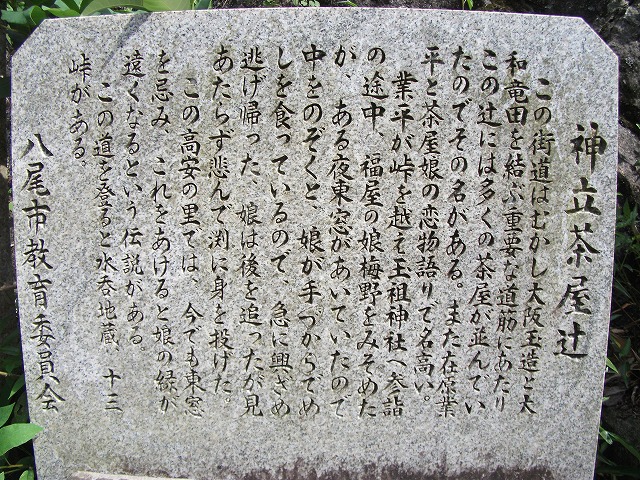 神立茶屋辻
この街道はむかし大阪玉造と大
和竜田を結ぶ重要な道筋にあたり
この辻には多くの茶屋が並んでい
たのでその名がある。また在原業
平と茶屋娘の恋物語りで名高い。
業平が峠を越え玉祖神社へ参詣
の途中、福屋の娘梅野をみそめた
が、ある夜東窓があいていたので
中をのぞくと、娘が手づからでめ
しを食っているので、急に興ざめ
逃げ帰った、娘は後を追ったが見
あたらず悲んで渕に身を投げた。
この高安の里では、今でも東窓
を忌み、これをあけると娘の縁が
遠くなるという伝説がある
この道を登ると水呑地蔵、十三
峠がある。
八尾市教育委員会